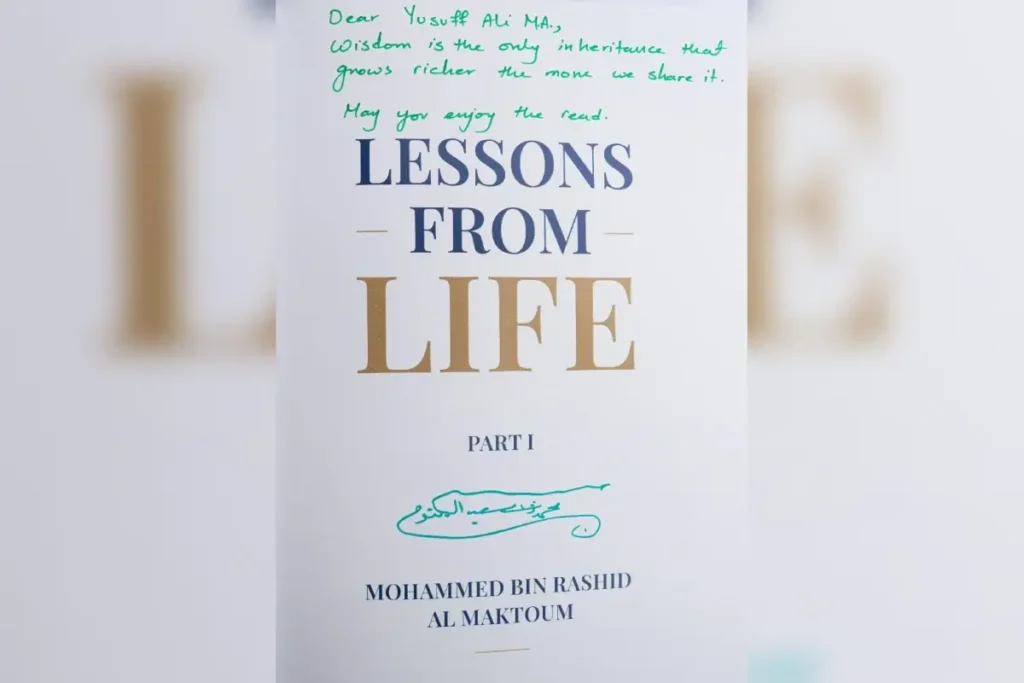 Dear Yusuff Ali MA.,
Wisdom is the only inheritance that
grows richer the more we share it.
May you enjoy the read.
LESSONS
FROM
LIFE
PART I
MOHAMMED BIN RASHID
AL MAKTOUM